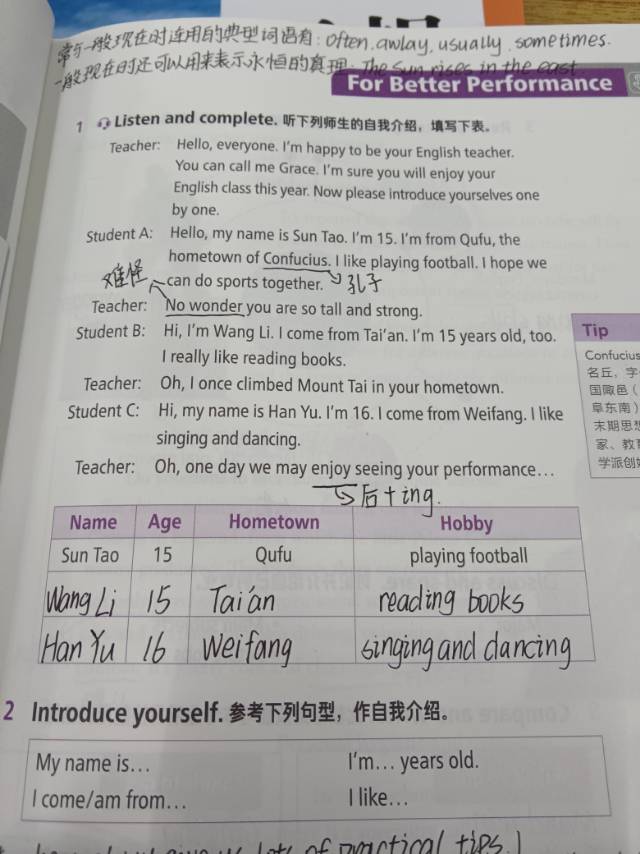 常与一般现在时连用的典型词语有: Often. awlay. usually. sometimes.
一般现在时还可以用来表示永恒的真理: The Sun rises in the east
For Better Performance
1 Listen and complete. 听下列师生的自我介绍，填写下表。
Teacher: Hello, everyone. I'm happy to be your English teacher.
You can call me Grace. I'm sure you will enjoy your
English class this year. Now please introduce yourselves one
by one.
Student A: Hello, my name is Sun Tao. I'm 15. I'm from Qufu, the
hometown of Confucius. I like playing football. I hope we
难怪 can do sports together. 孔子
Teacher: No wonder you are so tall and strong.
Student B: Hi, I'm Wang Li. I come from Tai'an. I'm 15 years old, too.
I really like reading books.
Teacher: Oh, I once climbed Mount Tai in your hometown.
Student C: Hi, my name is Han Yu. I'm 16. I come from Weifang. I like
singing and dancing.
Teacher: Oh, one day we may enjoy seeing your performance…
后+ing.
Name Age Hometown Hobby
Sun Tao 15 Qufu playing football
Wang Li 15 Tai'an reading books
Han Yu 16 Weifang singing and dancing
Tip
Confucius
名丘，字
国陬邑（
阜东南）
末期思想
家、教育
学派创始
2 Introduce yourself. 参考下列句型，作自我介绍。
My name is… I'm… years old.
I come/am from… I like…
lots of practical tips.)